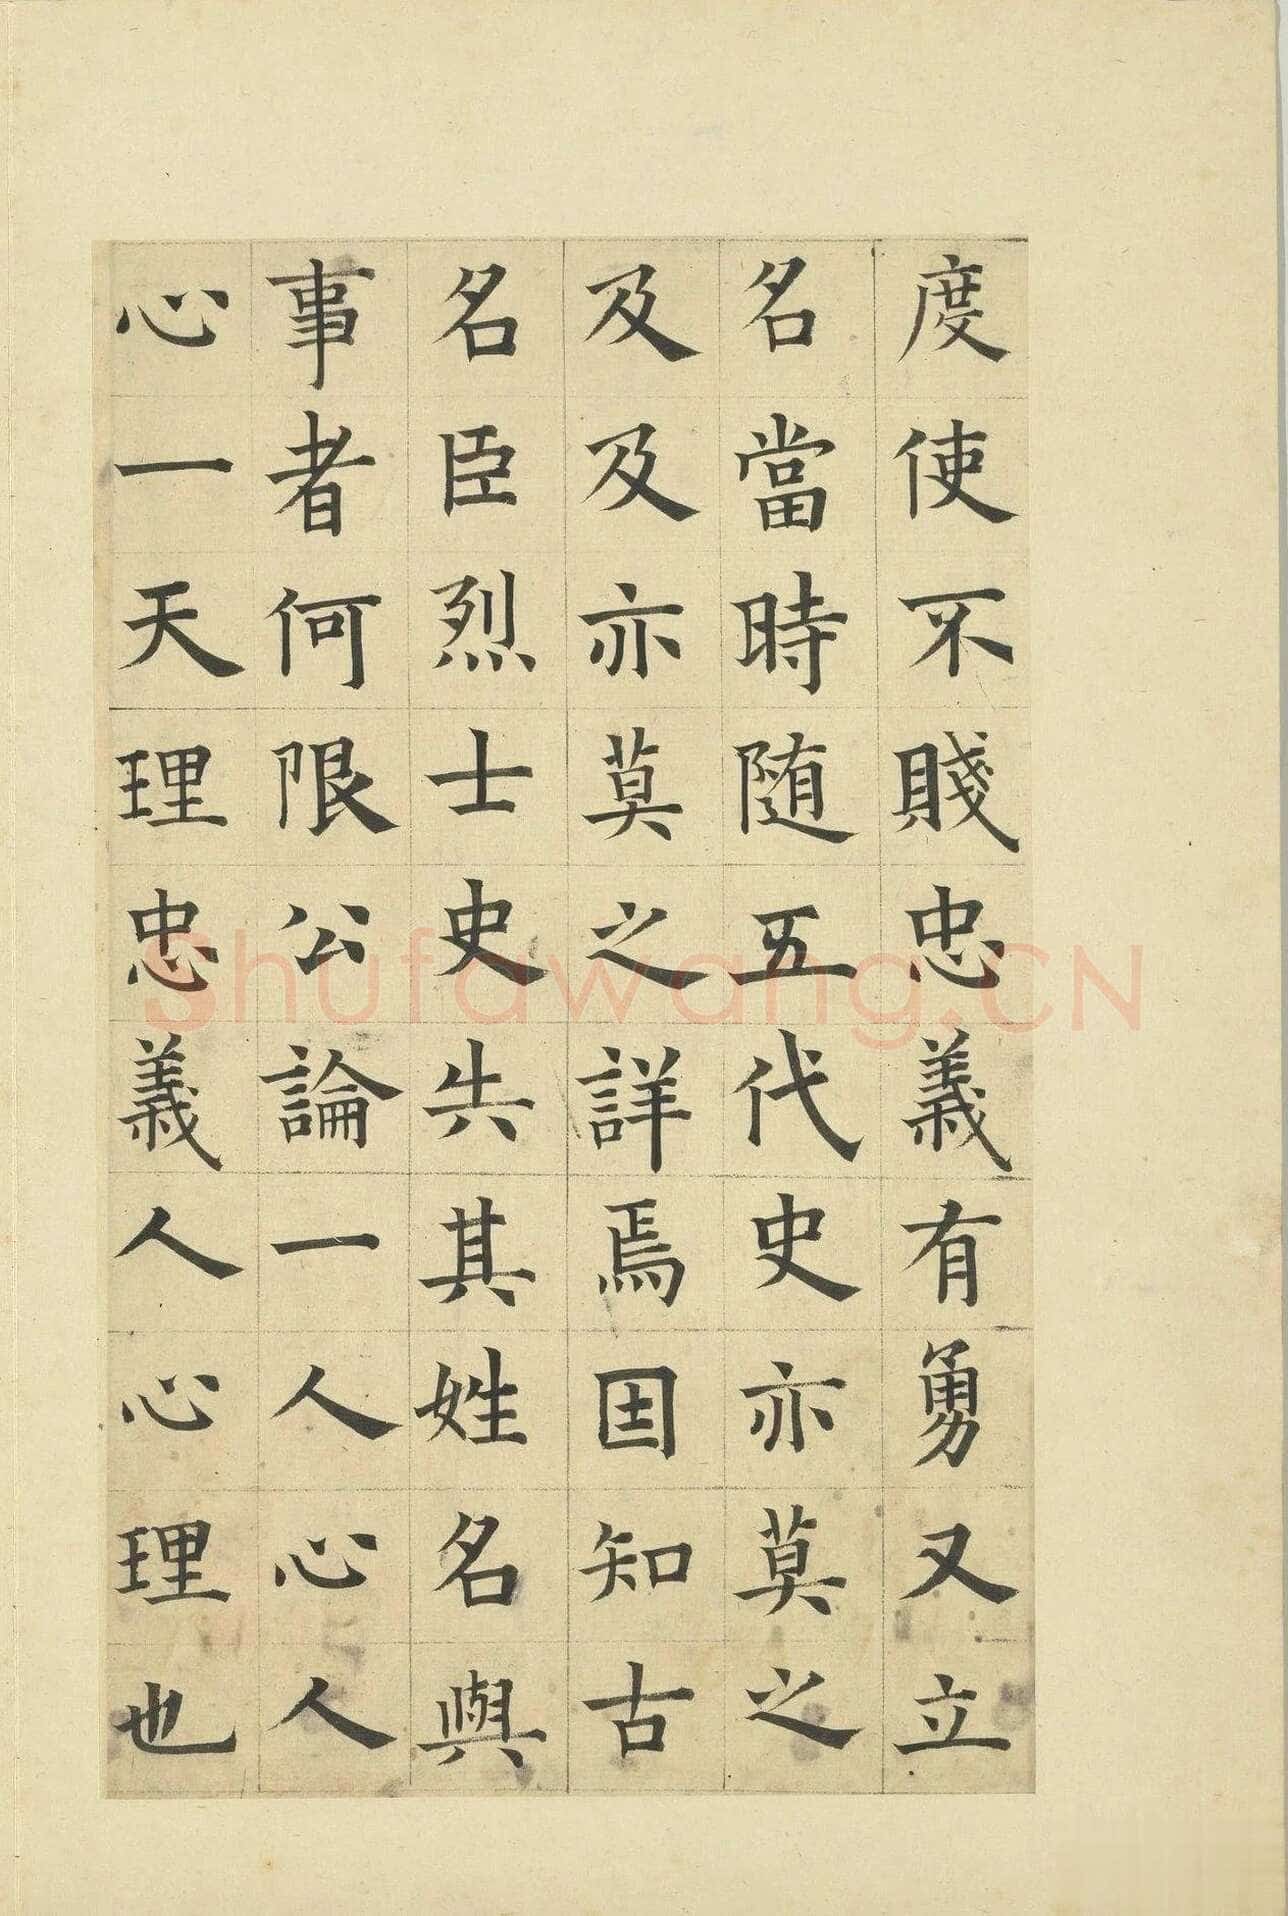 度使不賤忠義有勇又立
名當時随五代史亦莫之
及及亦莫之詳焉因知古
名臣烈士史失其姓名與
事者何限公論一人心人
心一天理忠義人心理也
Shufawang.CN